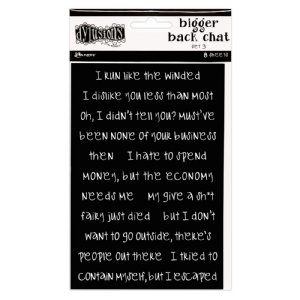 DYLUSIONS
bigger
back chat
set 3
Ranger
8 SHEETS
I RUN LIKE THE WINDED
I DISLIKE YOU LESS THAN MOST
OH, I DIDN'T TELL YOU? MUST'VE
BEEN NONE OF YOUR BUSINESS
THEN I HATE TO SPEND
MONEY, BUT THE ECONOMY
NEEDS ME MY GIVE A SH*T
FAIRY JUST DIED BUT I DON'T
WANT TO GO OUTSIDE, THERE'S
PEOPLE OUT THERE I TRIED TO
CONTAIN MYSELF, BUT I ESCAPED